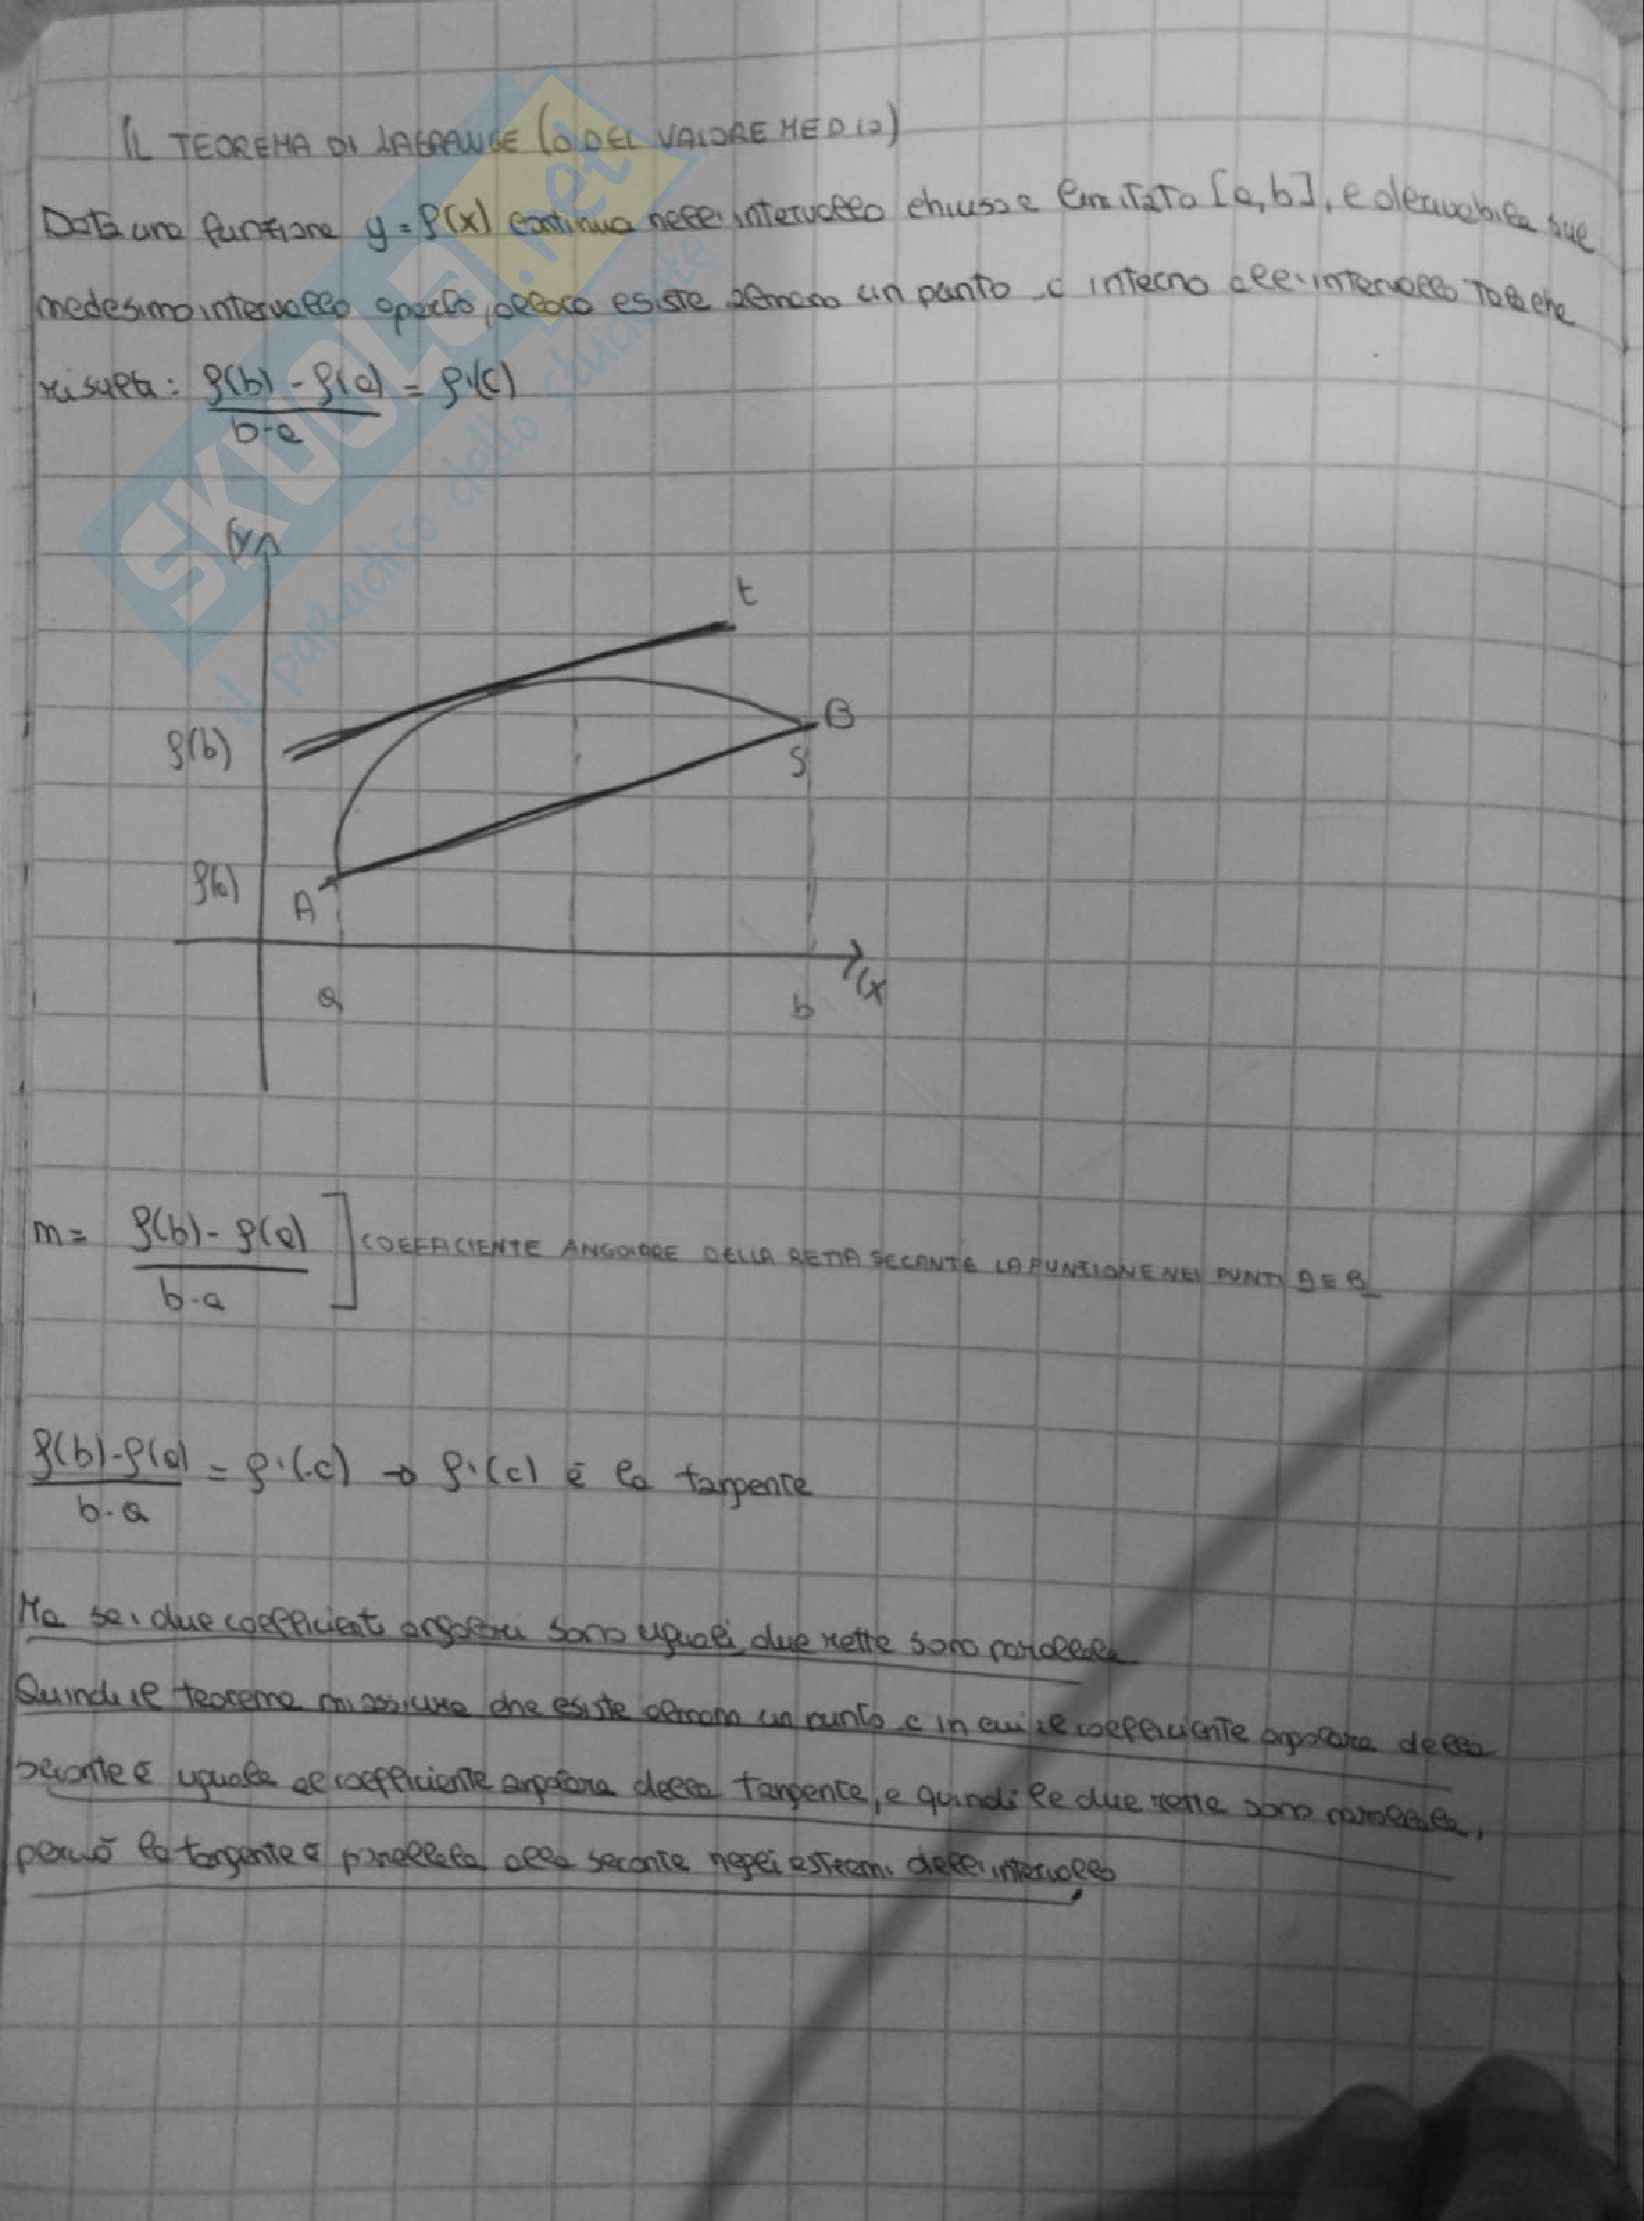 IL TEOREMA DI LAGRANGE (O DEL VALORE MEDIO)
Data una funzione y = f(x) continua nell'intervallo chiuso e limitato [a,b], e derivabile sul
medesimo intervallo aperto, allora esiste almeno un punto c interno all'intervallo tale che
risulta: f(b) - f(a) = f'(c)
b-a
SKUOLA.net
il paradiso dello studente
(y
t
f(b)
B
S
f(a)
A
(x
a
b
m = f(b) - f(a) ] COEFFICIENTE ANGOLARE DELLA RETTA SECANTE LA FUNZIONE NEI PUNTI A E B
b-a
f(b)-f(a) = f'(c) → f'(c) è la tangente
b-a
Ma se i due coefficienti angolari sono uguali, due rette sono parallele
Quindi il teorema mi assicura che esiste almeno un punto c in cui il coefficiente angolare della
secante è uguale al coefficiente angolare della tangente, e quindi le due rette sono parallele,
perciò la tangente è parallela alla secante negli estremi dell'intervallo